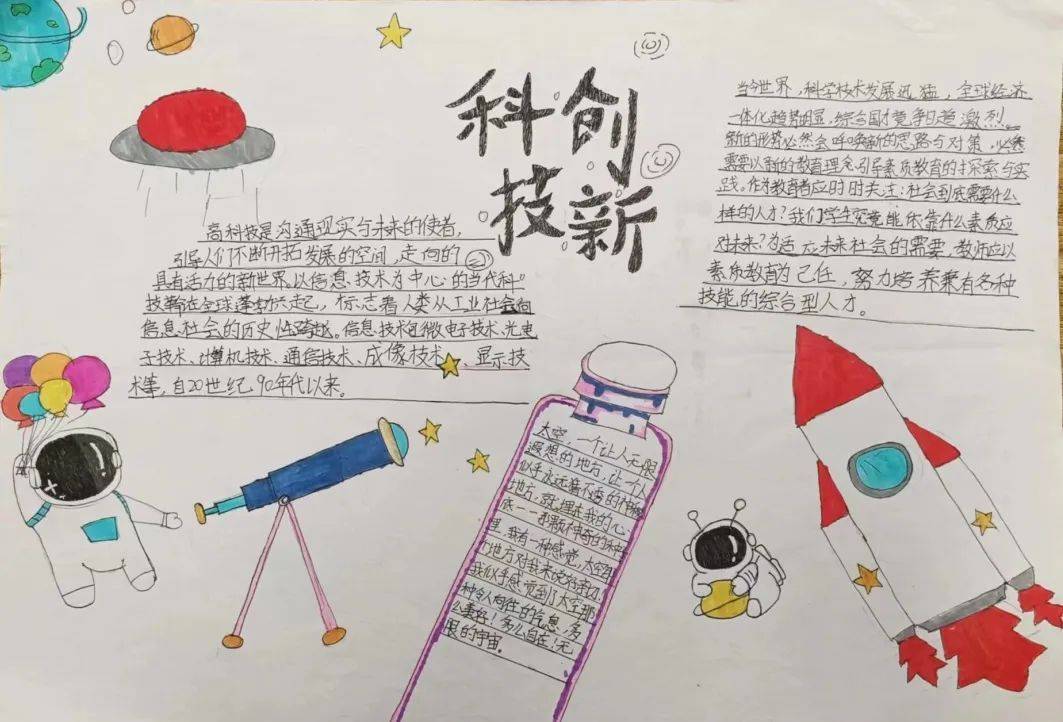 科创
技新
高科技是沟通现实与未来的使者,
引导人们不断开拓发展的空间,走向的
具有活力的新世界。以信息技术为中心的当代科
技革命在全球蓬勃兴起,标志着人类从工业社会向
信息社会的历史性跨越。信息技术包微电子技术、光电
子技术、计算机技术、通信技术、成像技术、显示技
术等,自20世纪90年代以来。
当今世界,科学技术发展迅猛,全球经济
一体化趋势明显,综合国才竞争日趋激烈。
新的形势必然会呼唤新的思路与对策,必然
需要以新的教育理念引导素质教育的探索与实
践。作为教育者应时时关注:社会到底需要什么
样的人才?我们学生究竟能依靠什么素质应
对未来?为适应未来社会的需要,教师应以
素质教育为己任,努力培养兼有各种
技能的综合型人才。
太空,一个让人无限
遐想的地方,让一个
似乎永远猜不透的神秘
地方,就埋在我的心
底——一颗神奇的种子
里,我有一种感觉,太空那
个地方对我来说
我似乎感觉到了太空那
种令人向往的气息,多
么美好!多么自在!无
限的宇宙。